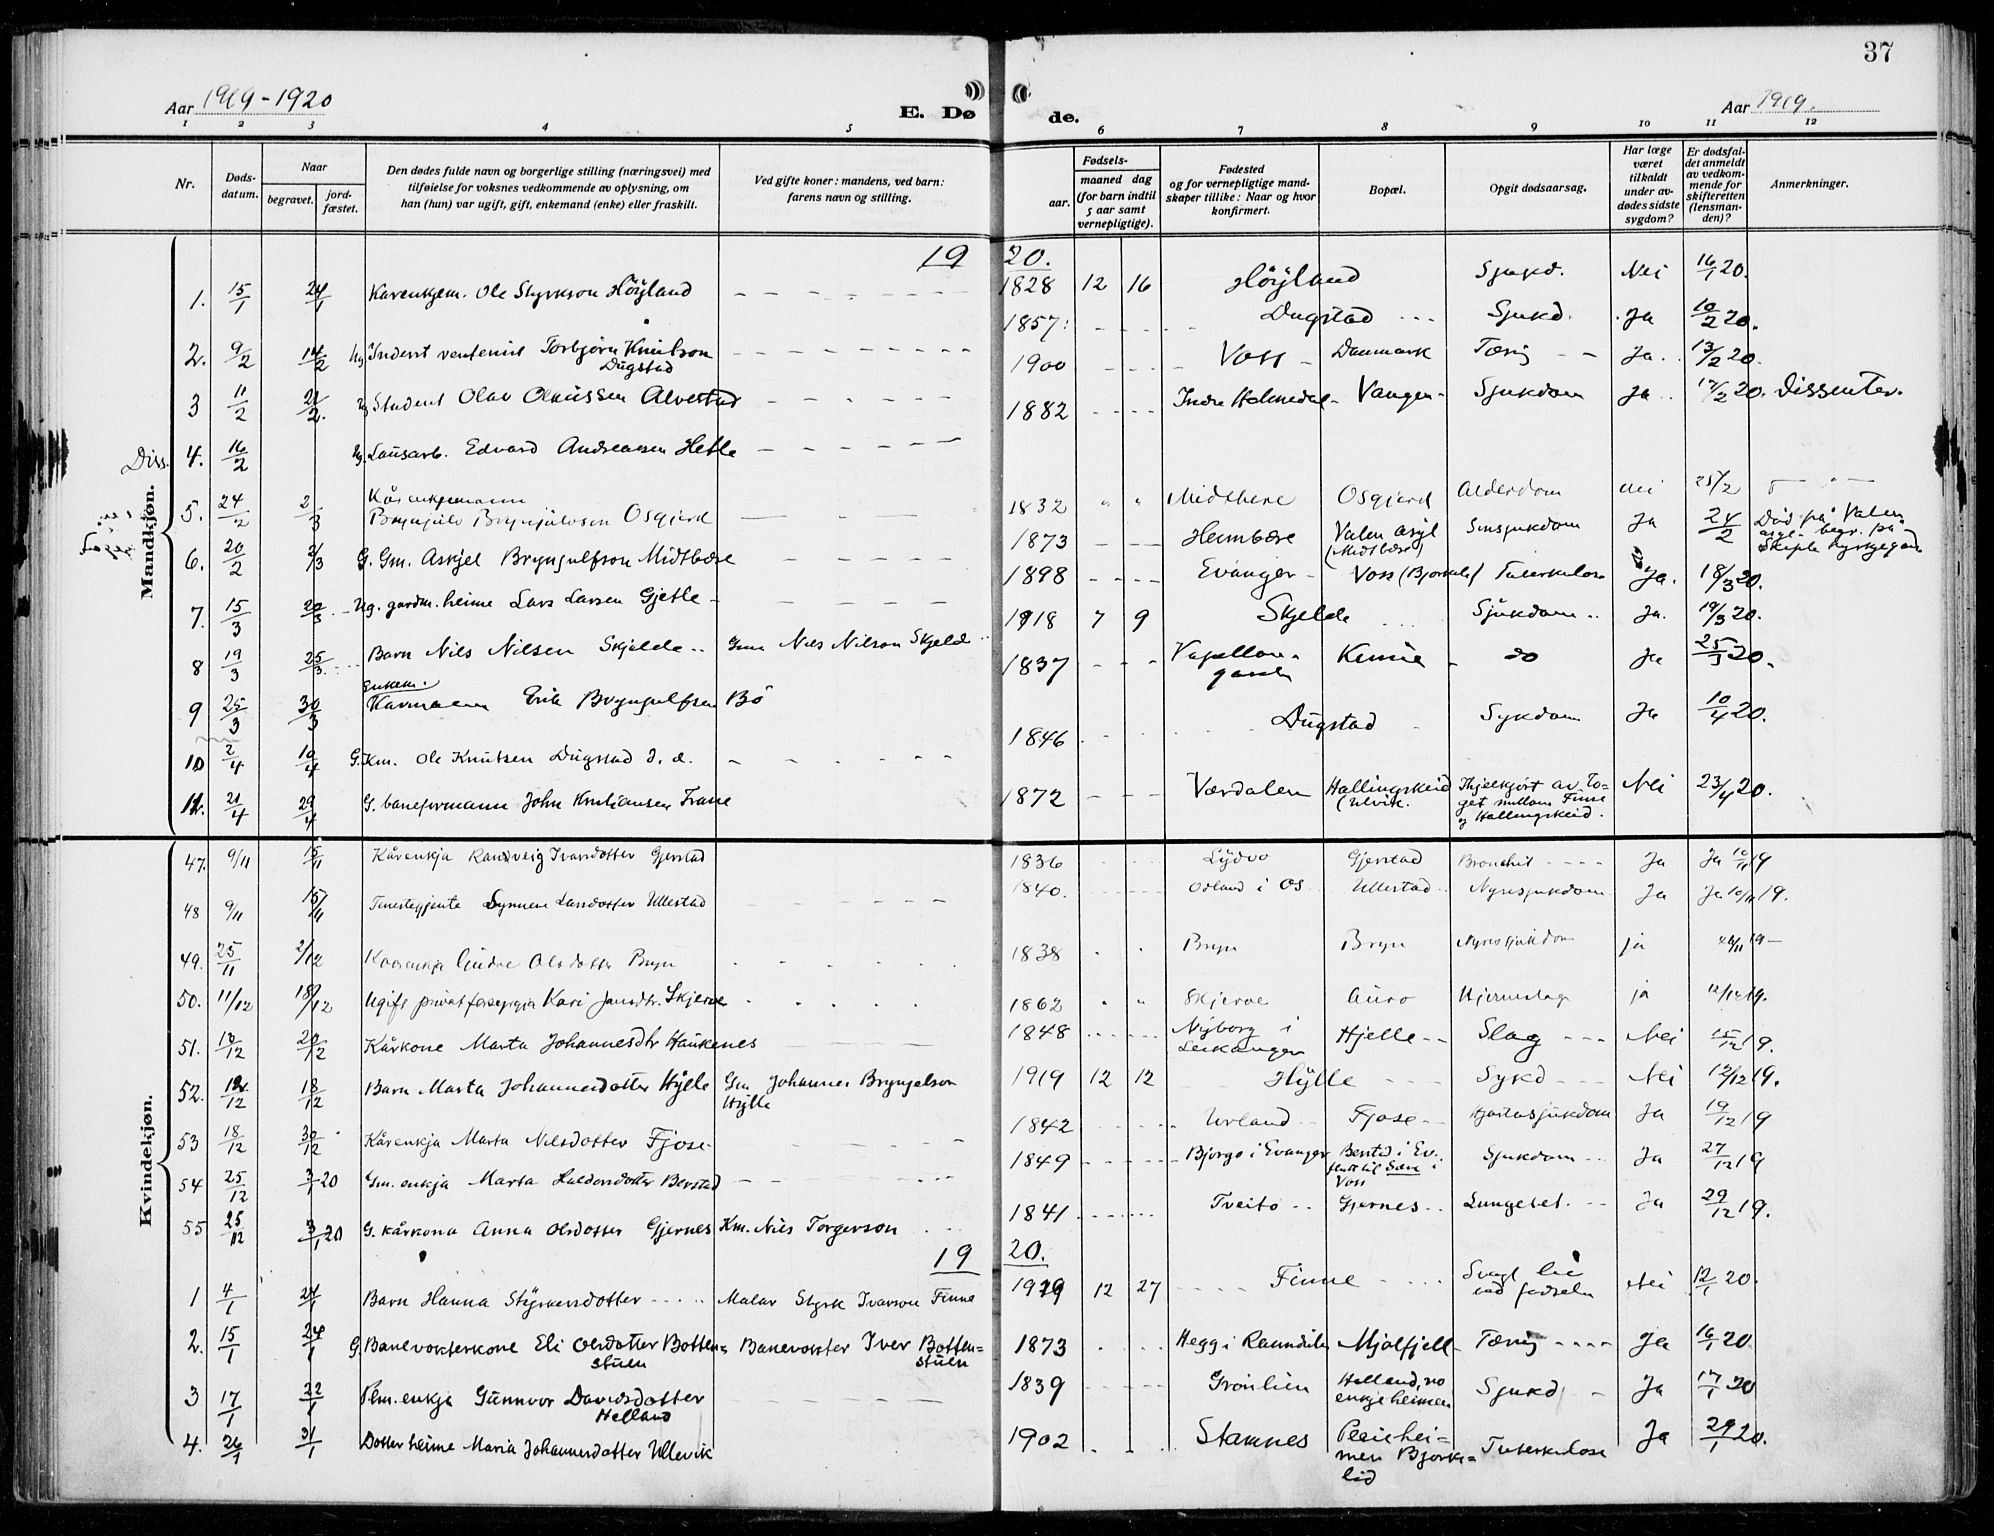 37
Aar 1919-1920
E. Døde.
Aar 1919.
1 2 3 4 5 6 7 8 9 10 11 12
Nr.
Døds-datum.
Naar
begravet.
jord-fæstet.
Den dødes fulde navn og borgerlige stilling (næringsvei) med tilføielse for voksnes vedkommende av oplysning, om han (hun) var ugift, gift, enkemand (enke) eller fraskilt.
Ved gifte koner: mandens, ved barn: farens navn og stilling.
Fødsels-
aar.
maaned dag
(for barn indtil 5 aar samt vernepligtige).
Fødested og for vernepligtige mandskaper tillike: Naar og hvor konfirmert.
Bopæl.
Opgit dødsaarsag.
Har læge været tilkaldt under avdødes sidste sygdom?
Er dødsfaldet anmeldt av vedkommende for skifteretten (lensmanden)?
Anmerkninger.
Mandkjøn.
1920.
1. 15/1 24/1 Kårenkjem. Ole Styrkson Höyland 1828 12 16 Höyland Sjukd. Nei 16/1 20.
1857. Dugstad Sjukd. Ja 10/2 20.
2. 9/2 14/2 Torbjörn Knutson Dugstad 1900 Voss Danmark Tæring Ja 13/2 20.
3 11/2 21/2. Student Olav Olaussen Alvestad 1882 Indre Holmedal Vangen Sjukdom Ja 17/2 20. Dissenter.
Diss. 4. 16/2 Ug. Lausarb. Edvard Andreassen Hetle
5. 24/2 2/3 Kårenkjemann Brynjulv Brynjulvsen Osgjerd 1832 " " Midtbere Osgjerd Alderdom Nei 25/2
6. 20/2 2/3 G. Gm. Askjel Bryngulfson Midtbære 1873 Heimbære Valen asyl (Midtbære) Sinsjukdom Ja 24/2 Död på Valen asyl - begr. på kyrkjegard
7. 15/3 20/3 Ug. gardm. heime Lars Larsen Gjetle 1898 Evanger Voss (Bjorkeli) Tuberkulose Ja. 18/3 20.
8 19/3 25/3 Barn Nils Nilsen Skjelde Gm. Nils Nilson Skjelde 1918 7 9 Skjelde Sjukdom Ja. 19/3 20.
9 25/3 30/3 Enkem. Kårmann Erik Bryngulfsen Bö 1837 Kinne do Ja 25/3 20.
10 2/4 10/4 G. Km. Ole Knutsen Dugstad d. e. 1846 Dugstad Sykdom Ja 10/4 20.
11. 21/4 29/4 G. baneformann John Kristiansen Frane 1872 Værdalen Hallingskeid (Ulvik. Ihjelkjört av Toget millom Finse og Hallingskeid. Nei 23/4 20.
Kvindekjøn.
47. 9/11 15/11 Kårenkja Randveig Ivarsdotter Gjerstad 1836 Lydvo Gjerstad Bronchit Ja Ja 10/11 19
48 9/11 15/11 Tenestegjente Synneve Larsdotter Ullestad 1840. Osland i Os Ullestad Nyresjukdom Ja Ja 10/11 19.
49. 25/11 2/12 Kaarenkja Gudve Olsdotter Bryn 1838 Bryn Bryn Nyresjukdom ja 26/11 19
50. 11/12 18/12 Ugift Kari Jonsdtr. Skjerve 1862 " " Skjerve Auro Hjerneslag ja 12/12 19.
51. 13/12 20/12 Kårkone Marta Johannesdtr Haukenes 1848 Nyborg i Leikanger Hjelle Slag Nei 15/12 19.
52. 12/12 18/12 Barn Marta Johannesdotter Hylle Gm Johannes Bryngelson Hylle 1919 12 12 Hylle Sykd Nei 12/12 19.
53 18/12 30/12 Kårenkja Marta Nilsdotter Fjose 1842 Urland Fjose Hjartesjukdom Ja 19/12 19
54 25/12 3/1 20 Gm. enkja Marta Haldorsdotter Berstad 1849 Bjorgo i Evanger Berstad i Ev. flutt til Sære i Voss Sjukdom Ja 27/12 19
55 25/12 3/1 20 G. kårkona Anna Olsdotter Gjernes Km. Nils Torgerson 1841 Tveito Gjernes Lungebet. Ja 29/12 19.
1920.
1 4/1 24/1 Barn Hanna Styrkersdotter Malar Styrk Ivarson Finne 1919 12 27 Finne Svagt liv ved fodseln Nei 12/1 20.
2. 15/1 24/1 G. Banevokterkone Eli Olsdotter Bottenstuen Banevokter Iver Bottenstuen 1873 Hegg i Raundalen Mjölfjell Tæring Ja 16/1 20.
3 17/1 22/1 Plm. enkja Gunnvor Davidsdotter Helland 1839 Grönlien Helland, no enkjeheimen Sjukd Ja 17/1 20
4. 26/1 31/1 Dotter heime Maria Johannesdotter Ullevik 1902 Stamnes Pleieheimen Bjorkelid Tuberkulose Ja 29/1 20.